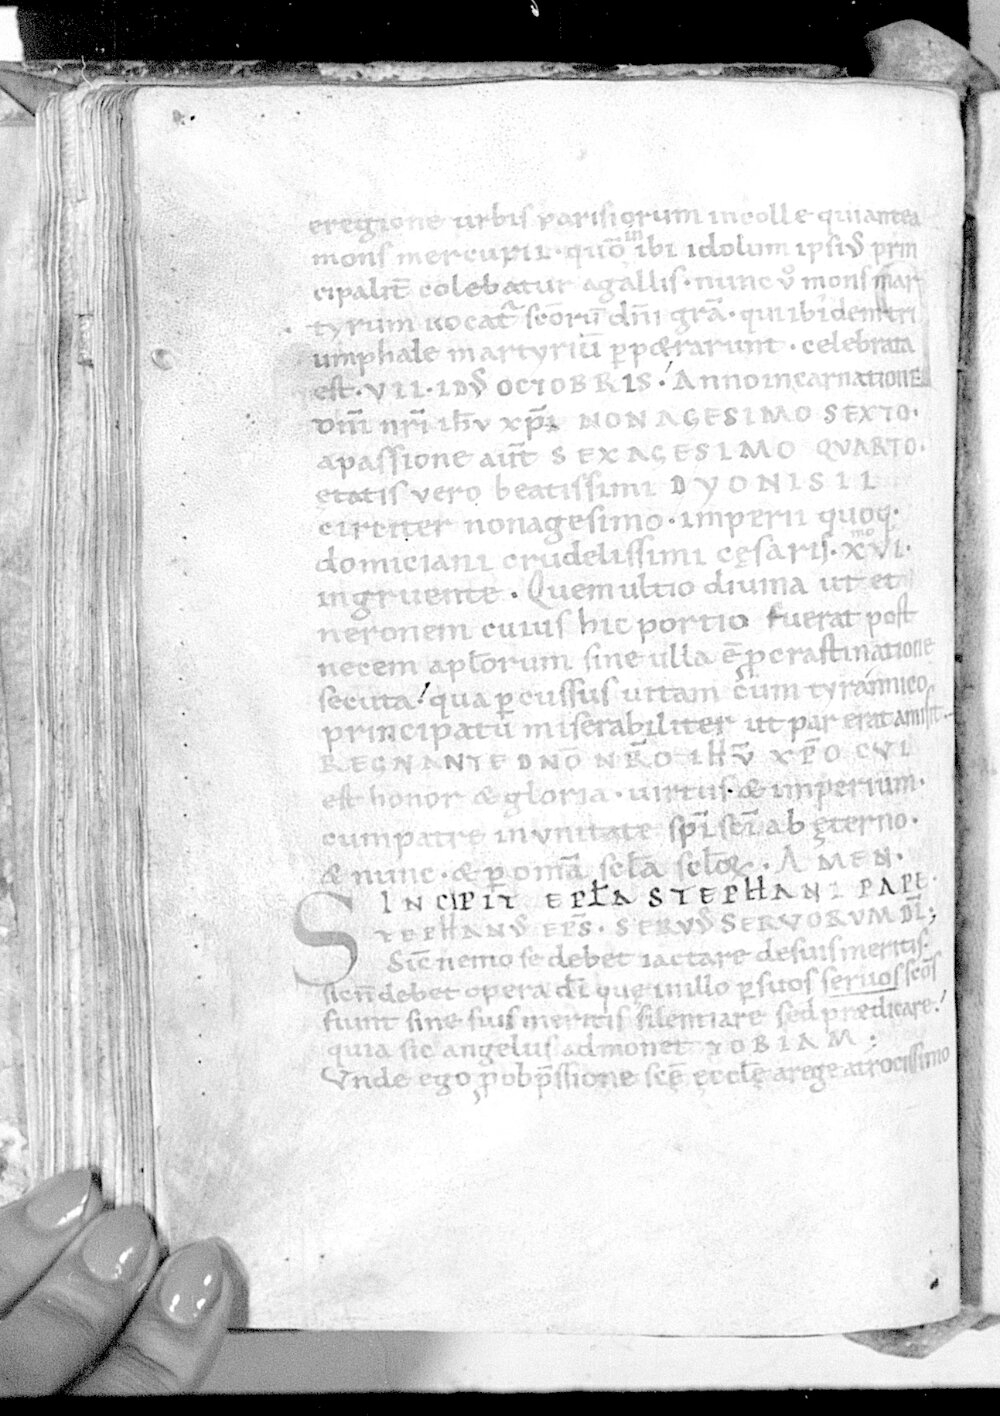 eregione urbis parisiorum in colle qui antea
mons mercurii · quō in ibi idolum ipsiꝰ prin
cipalit̄ colebatur agallis · nunc ṽ mons mar
tyrum uocat᷑ sc̄oru᷑ dn̄i gr̄a · qui ibidem tri
umphale martyriū ꝑpetrarunt · celebrata
est · VII · IDꝰ OCTOBRIS · Anno incarnatione
dn̄i nr̄i ih̄v xp̄i NONAGESIMO SEXTO ·
apassione aut̄ SEXAGESIMO QVARTO ·
ętatis vero beatissimi DYONISII
circiter nonagesimo · imperii quoq·
domiciani crudelissimi cęsaris · XVI·mo
ingruente · Quem ultio diuina ut et
neronem cuius hic portio fuerat post
necem apl̄orum sine ulla ē ꝓcrastinatione
secuta · qua ꝑcussus uitam cum tyrannico
principatu᷑ miserabiliter ut par erat amisit ·
REGNANTE DNŌ NR̄O IHV̄ XP̄O CVI
est honor & gloria · uirtus & imperium ·
cum patre in vnitate sp̄i sc̄i ab ęterno ·
& nunc · & ꝑ om̄a scl̄a scl̄oꝝ · AMEN ·
INCIPIT EPL̄A STEPHANI PAPE ·
STEPHANꝰ EPS̄ · SERVꝰ SERVORUM DĪ ;
Sic̄ nemo se debet iactare de suis meritis ·
sic n̄ debet opera dī quę in illo ꝑ suos seruos sc̄os
fiunt sine suis meritis silentiare sed predicare ·
quia sic angelus admonet TOBIAM ;
Vnde ego ꝓ obp̄ssione sc̄ę ęccl̄ę a rege atrocissimo